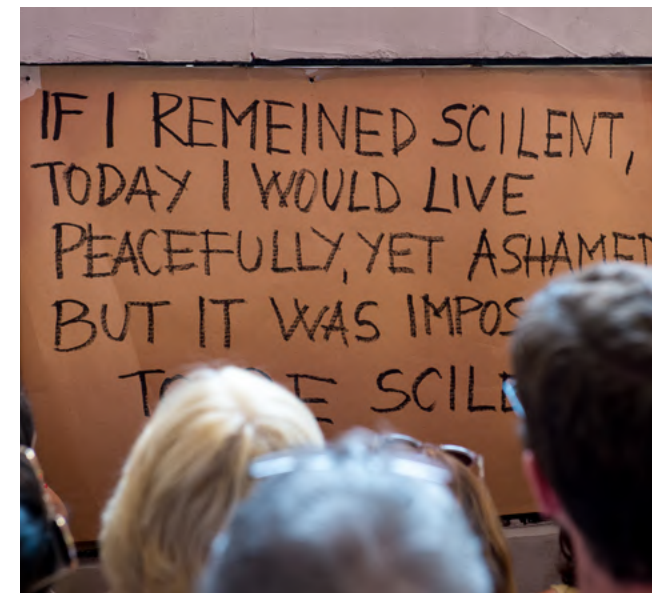 IF I REMEINED SCILENT,
TODAY I WOULD LIVE
PEACEFULLY, YET ASHAMED
BUT IT WAS